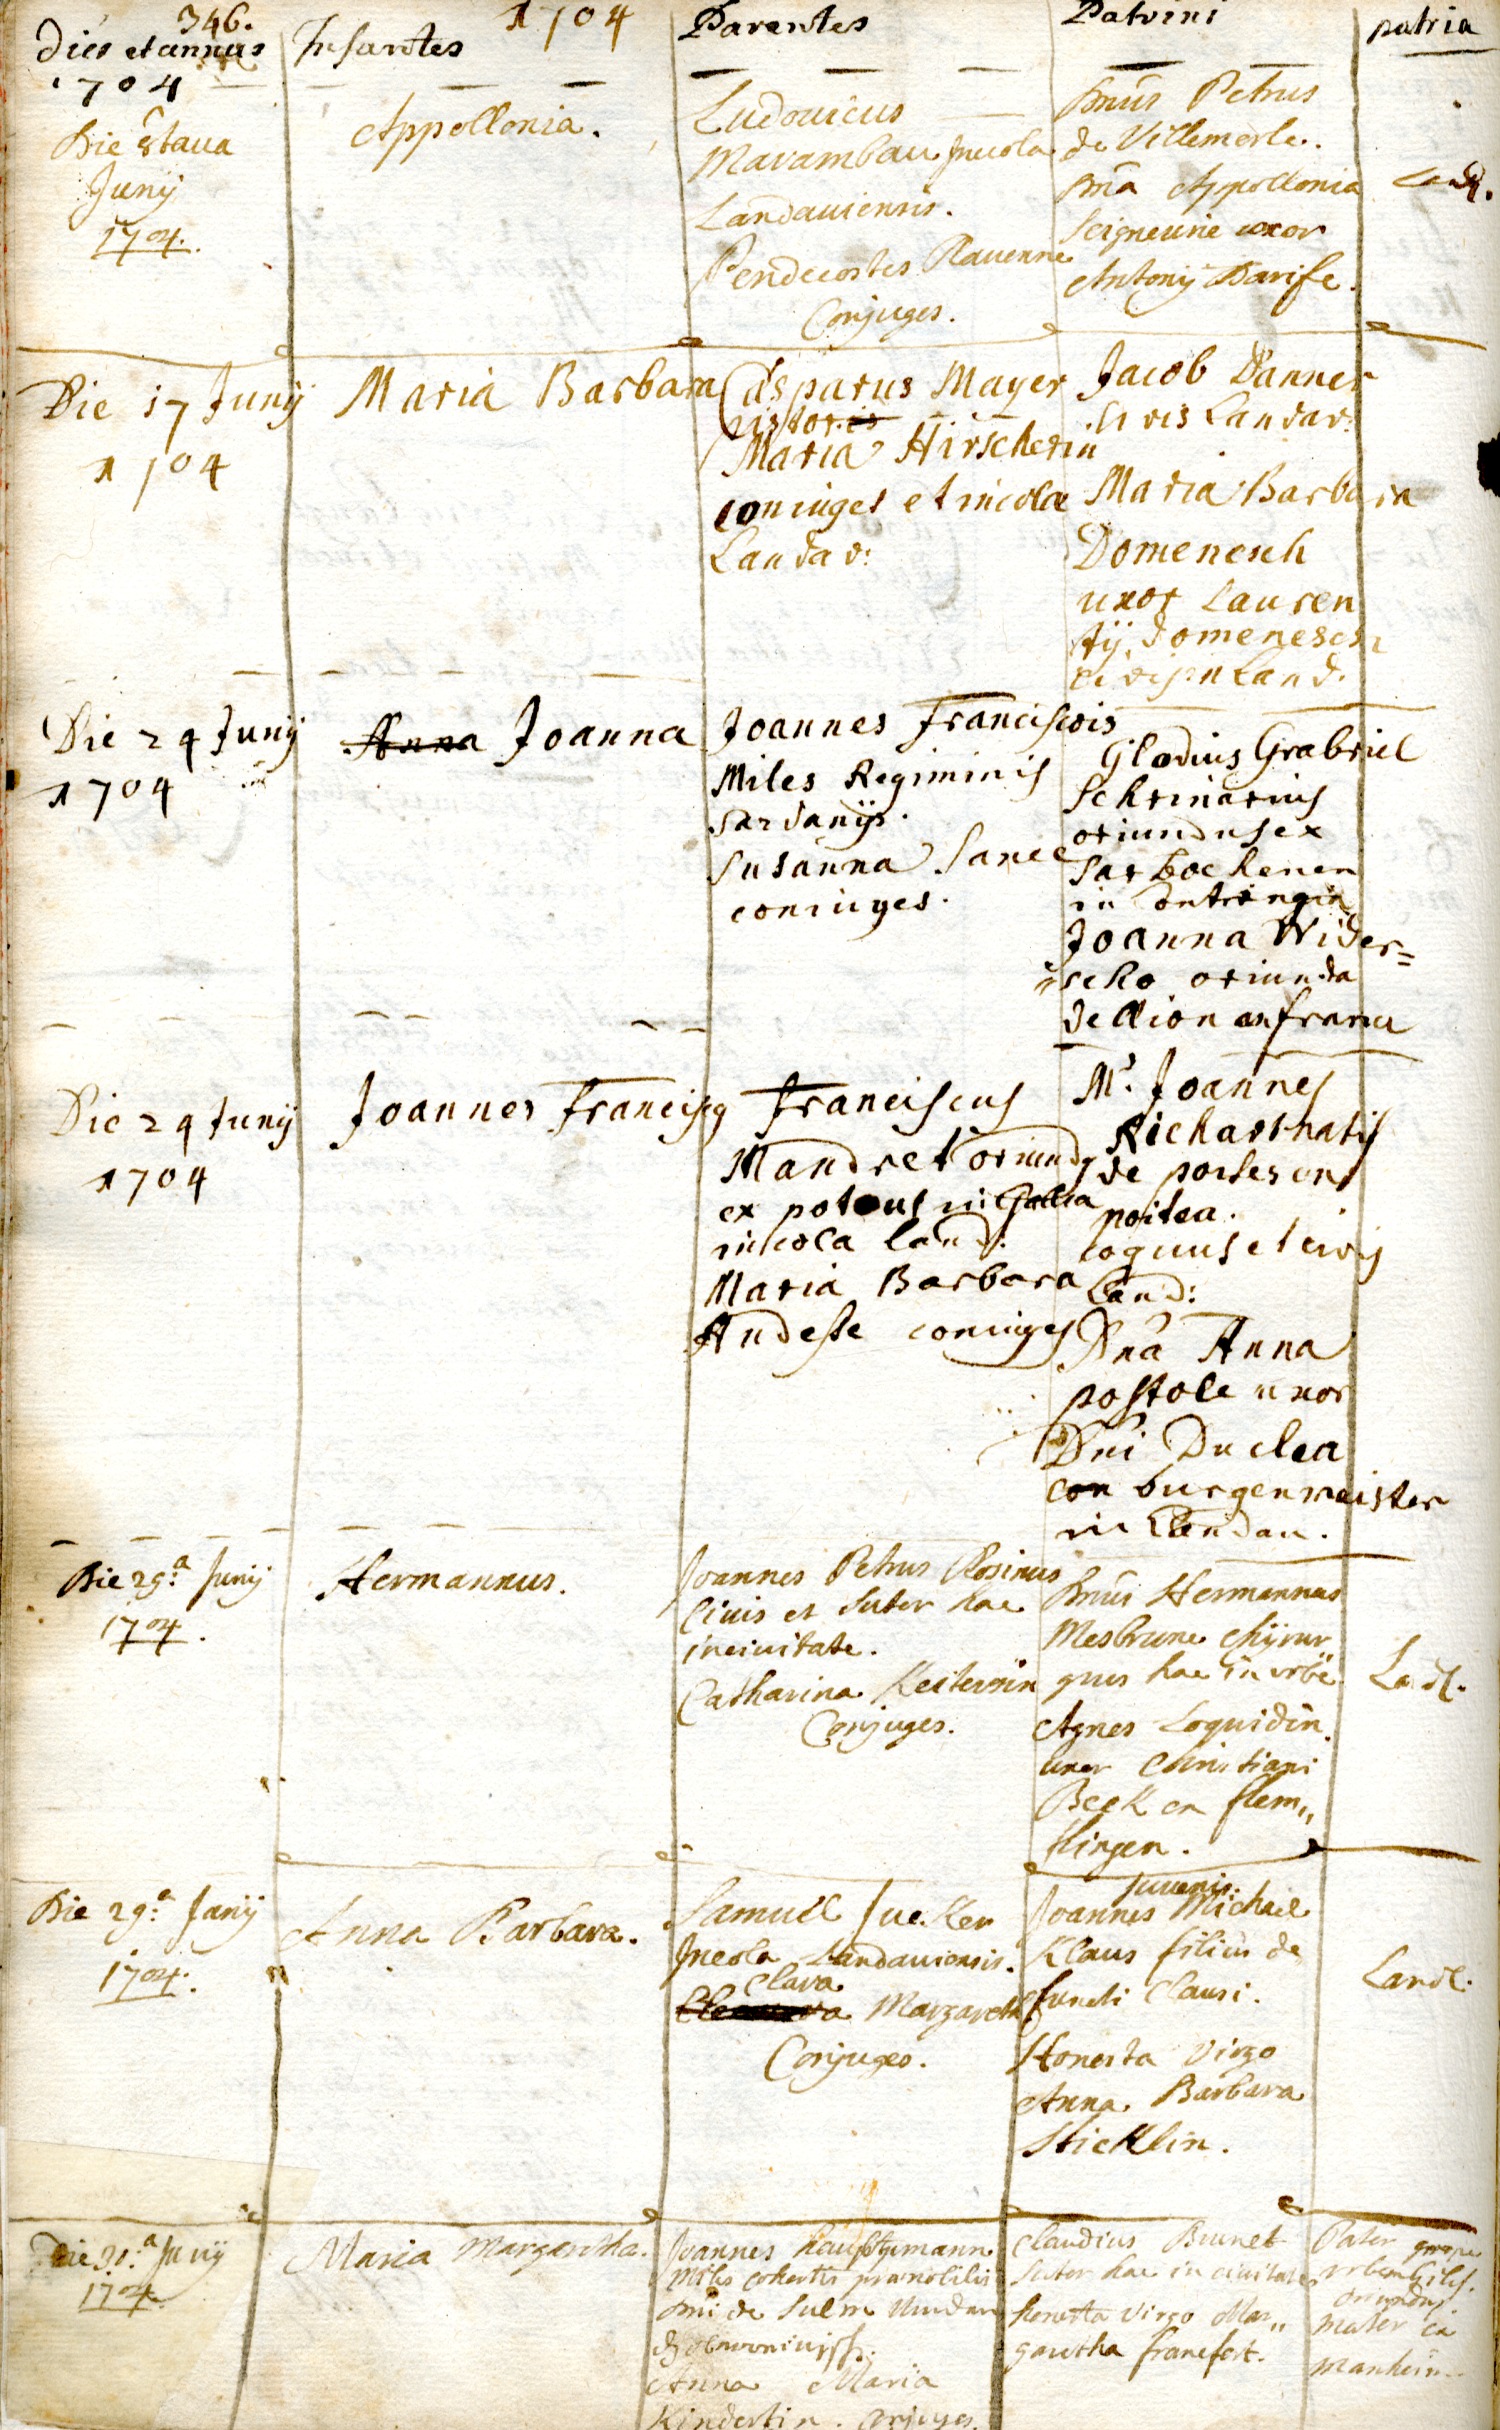 346.
Dies et annus
1704
Infantes
1704
Parentes
Patrini
patria
Die 8taua
Junij
1704.
Appollonia.
Ludouicus
Marambau Incola
Landauiensis.
Pendecostes Rauenne
Conjuges.
Dnus Petrus
de Villemerle.
Dna Appollonia
Seigneurie uxor
Antonij Darife.
Land.
Die 17 Junij
1704
Maria Barbara
Casparus Mayer
Maria Hirscherin
coniuges et incolæ
Landav:
Jacob Danner
civis Landav:
Maria Barbara
Domenesch
uxor Lauren
tij Domenesch
Land.
Die 24 Junij
1704
Anna Joanna
Joannes Franciscis
Miles Regiminis
Sardanijs.
Susanna Sanee
coniuges.
Glodius Grabriel
Schrinarius
oriundus ex
Sarbockenen
in Lontringia
Joanna Wider=
scho oriunda
de Llion en francia
Die 24 Junij
1704
Joannes Francisq
Franciscus
Mandret oriundq
ex potous in Gallia
incola Land:
Maria Barbara
Andesse coniuges
Mr. Joannes
Richart natis
de portes en
poitea.
coquus et civis
Land:
Dna Anna
postole uxor
Dni Duclea
con burgenmeister
in Landau.
Die 29.a Junij
1704.
Hermannus.
Joannes Petrus Rosinus
Ciuis et Suter hac
inciuitate.
Catharina Keiterinin
Conjuges.
Dnus Hermannus
Mesbrune Chijrur
gus hac in vrbe
Agnes Loquidin.
uxor Christiani
Beck en flem„
lingen.
Land.
Die 29.a Junij
1704.
Anna Barbara.
Samuel Juc.ker
Incola Landauiensis.
Clara
Margaretha
Conjuges.
Juuenis.
Joannes Michael
Klaus filius de
functi Clausi.
Honesta Virgo
Anna Barbara
Sticklin.
Land.
Die 30.a Junij
1704.
Maria Margaretha.
Joannes Hauptzmann
Miles cohortis prænobilis
Dni de Sulm
Anna Maria
Kindertin. Conjuges.
Claudius Brunet
Suter hac in ciuitate
honesta virgo Mar„
garetha francfort.
Pater prope
oriundus
Mater ex
Manheim.